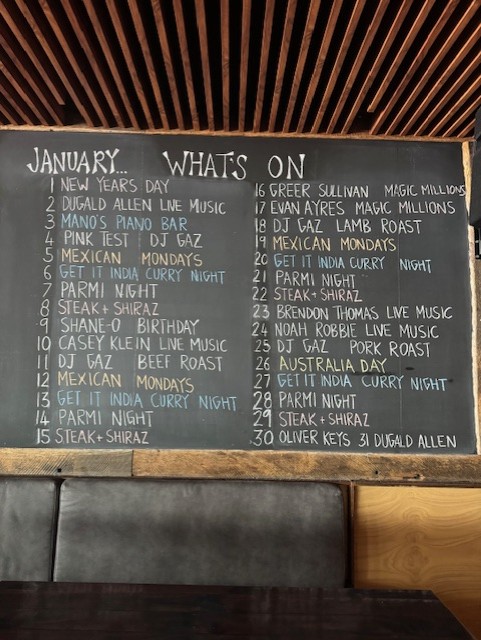 JANUARY... WHAT'S ON
1 NEW YEARS DAY
2 DUGALD ALLEN LIVE MUSIC
3 MANO'S PIANO BAR
4 PINK TEST DJ GAZ
5 MEXICAN MONDAYS
6 GET IT INDIA CURRY NIGHT
7 PARMI NIGHT
8 STEAK + SHIRAZ
9 SHANE-O BIRTHDAY
10 CASEY KLEIN LIVE MUSIC
11 DJ GAZ BEEF ROAST
12 MEXICAN MONDAYS
13 GET IT INDIA CURRY NIGHT
14 PARMI NIGHT
15 STEAK + SHIRAZ
16 GREER SULLIVAN MAGIC MILLIONS
17 EVAN AYRES MAGIC MILLIONS
18 DJ GAZ LAMB ROAST
19 MEXICAN MONDAYS
20 GET IT INDIA CURRY NIGHT
21 PARMI NIGHT
22 STEAK + SHIRAZ
23 BRENDON THOMAS LIVE MUSIC
24 NOAH ROBBIE LIVE MUSIC
25 DJ GAZ PORK ROAST
26 AUSTRALIA DAY
27 GET IT INDIA CURRY NIGHT
28 PARMI NIGHT
29 STEAK + SHIRAZ
30 OLIVER KEYS 31 DUGALD ALLEN